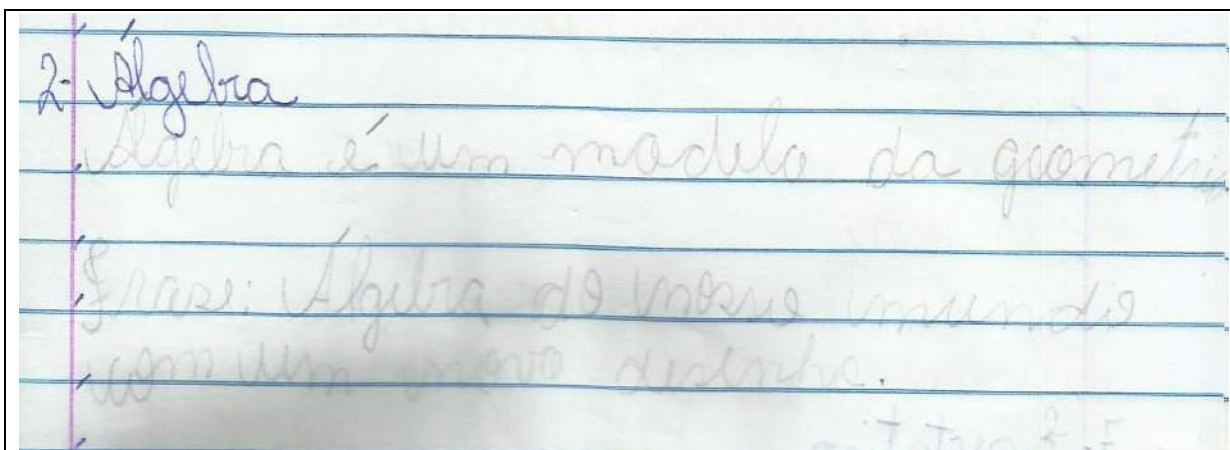 2- Álgebra
Álgebra é um modelo da geometria
Frase: Álgebra do nosso mundo
com um novo desenho.